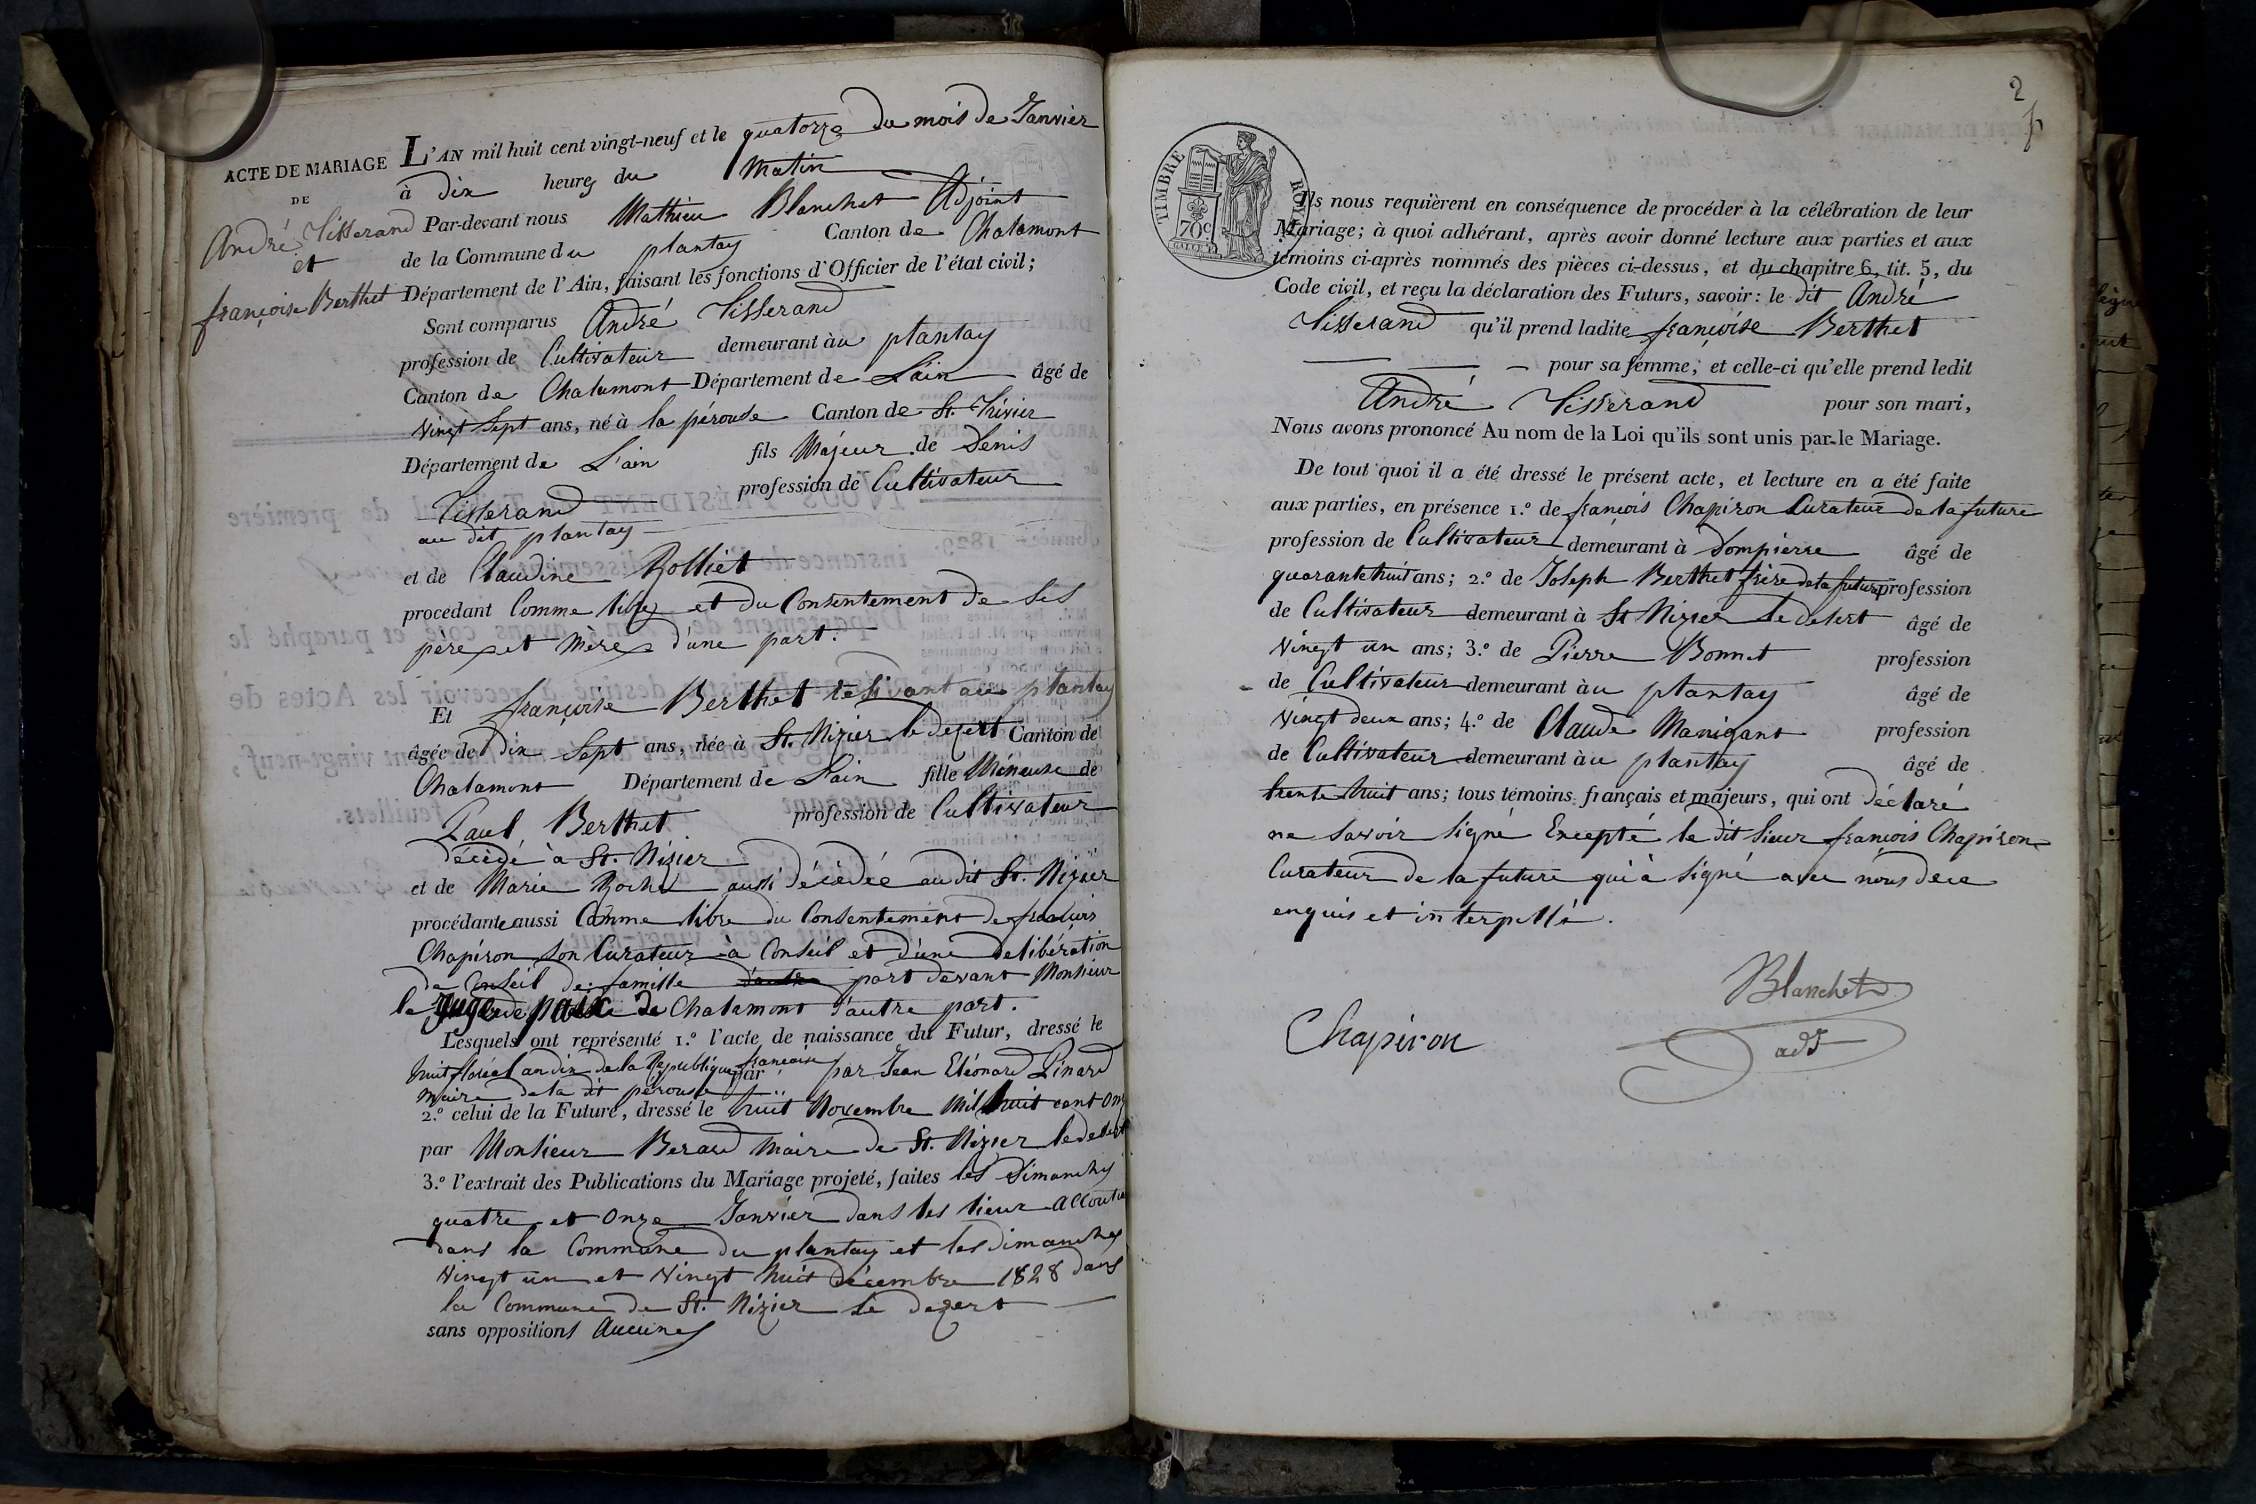 ACTE DE MARIAGE
DE
André Tisserand
et
françoise Berthet
L'AN mil huit cent vingt-neuf et le quatorze du mois de Janvier
à dix heures du Matin
Par-devant nous Mathieu Blanchet Adjoint
de la Commune du plantay Canton de Chalamont
Département de l'Ain, faisant les fonctions d'Officier de l'état civil;
Sont comparus André Tisserand
profession de Cultivateur demeurant àu plantay
Canton de Chalamont Département de L'ain âgé de
Vingt Sept ans, né à la pérouse Canton de St. Trivier
Département de L'ain fils Majeur de Denis
Tisserand profession de Cultivateur
au dit plantay
et de Claudine Rolliet
procedant Comme libre et du Consentement de Ses
père et Mère d'une part.
Et françoise Berthet résidant au plantay
âgée de dix Sept ans, née à St. Nizier le dezert Canton de
Chalamont Département de L'ain fille Mineure de
Paul Berthet profession de Cultivateur
décédé à St. Nizier
et de Marie Rochet aussi décédée au dit St. Nizier
procédante aussi Comme libre du Consentement de francois
Chapiron Son Curateur à Conseil et d'une delibération
de Conseil de famille d'autre part devant Monsieur
le Juge de paix de Chalamont d'autre part.
Lesquels ont représenté 1.º l'acte de naissance du Futur, dressé le
huit floréal an dix de la République francoise par par Jean Eléonard Pinard
Maire de la dit pérouse
2.º celui de la Future, dressé le huit Novembre Mil huit cent onze
par Monsieur Berard Maire de St. Nizier le desert
3.º l'extrait des Publications du Mariage projeté, faites les Dimanches
quatre et Onze Janvier dans les lieux Accoutu
dans la Commune du plantay et les dimanches
Vingt un et Vingt huit décembre 1828 dans
la Commune de St. Nizier Le dezert
sans oppositions Aucunes
2
TIMBRE ROYAL
70c
Ils nous requièrent en conséquence de procéder à la célébration de leur
Mariage; à quoi adhérant, après avoir donné lecture aux parties et aux
témoins ci-après nommés des pièces ci-dessus, et du chapitre 6, tit. 5, du
Code civil, et reçu la déclaration des Futurs, savoir: le dit André
Tisserand qu'il prend ladite françoise Berthet
pour sa femme; et celle-ci qu'elle prend ledit
André Tisserand pour son mari,
Nous avons prononcé Au nom de la Loi qu'ils sont unis par le Mariage.
De tout quoi il a été dressé le présent acte, et lecture en a été faite
aux parties, en présence 1.º de francois Chapiron Curateur de la future
profession de Cultivateur demeurant à Dompierre âgé de
quarante huit ans; 2.º de Joseph Berthet frère de la future profession
de Cultivateur demeurant à St Nizier Le desert âgé de
Vingt un ans; 3.º de Pierre Bonnet profession
de Cultivateur demeurant àu plantay âgé de
Vingt deux ans; 4.º de Claude Manigant profession
de Cultivateur demeurant àu plantay âgé de
trente huit ans; tous témoins français et majeurs, qui ont déclaré
ne Savoir Signé Excepté le dit Sieur francois Chapiron
Curateur de la future qui à Signé avec nous de ce
enquis et interpellé.
Blanchet
Chapiron
adt